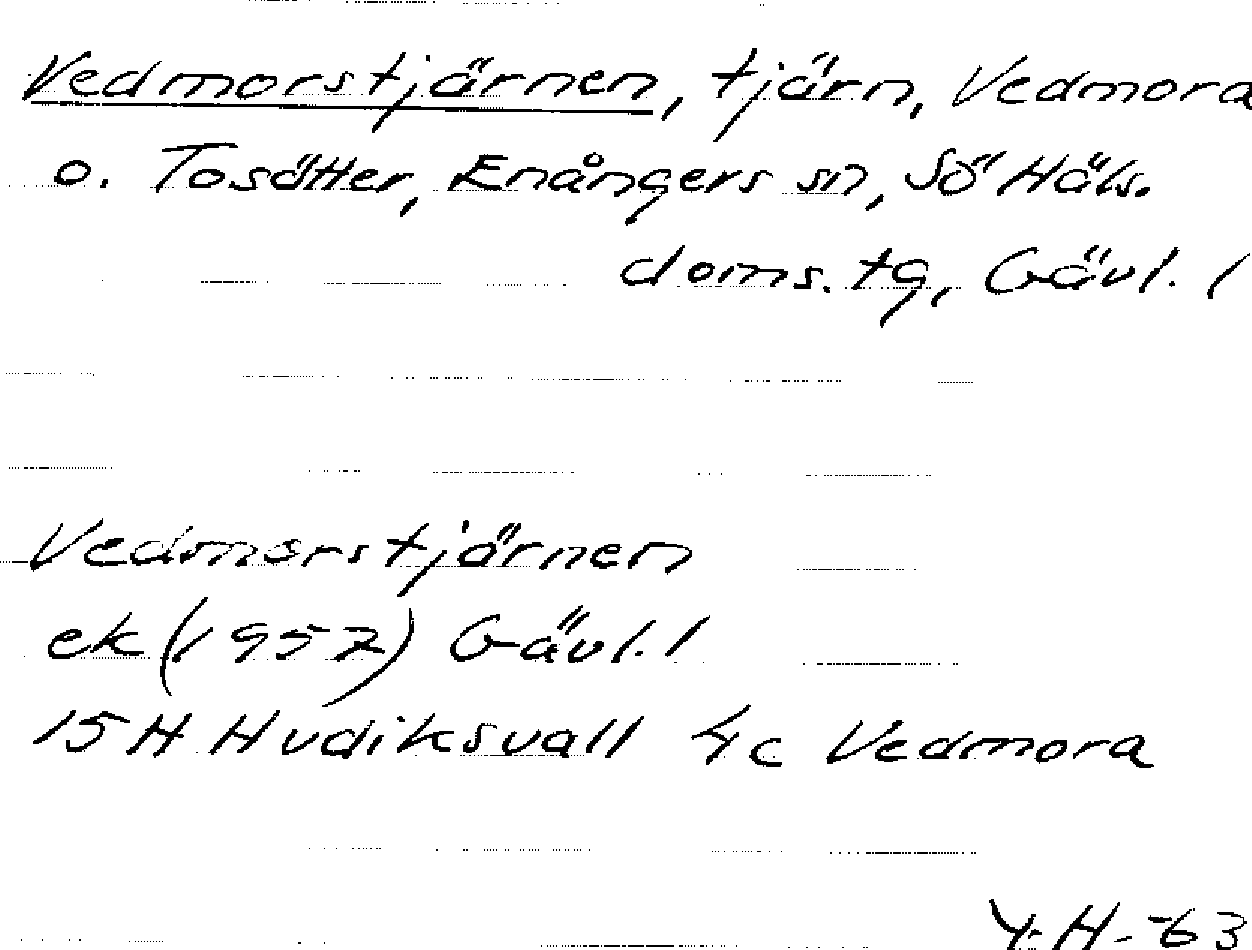 Vedmorstjärnen, tjärn, Vedmora
o. Tosätter, Enångers sn, Sö Häls.
doms. tg, Gävl. l
Vedmorstjärnen
ek (1957) Gävl. l
15H Hudiksvall 4c Vedmora
Y. H. -63